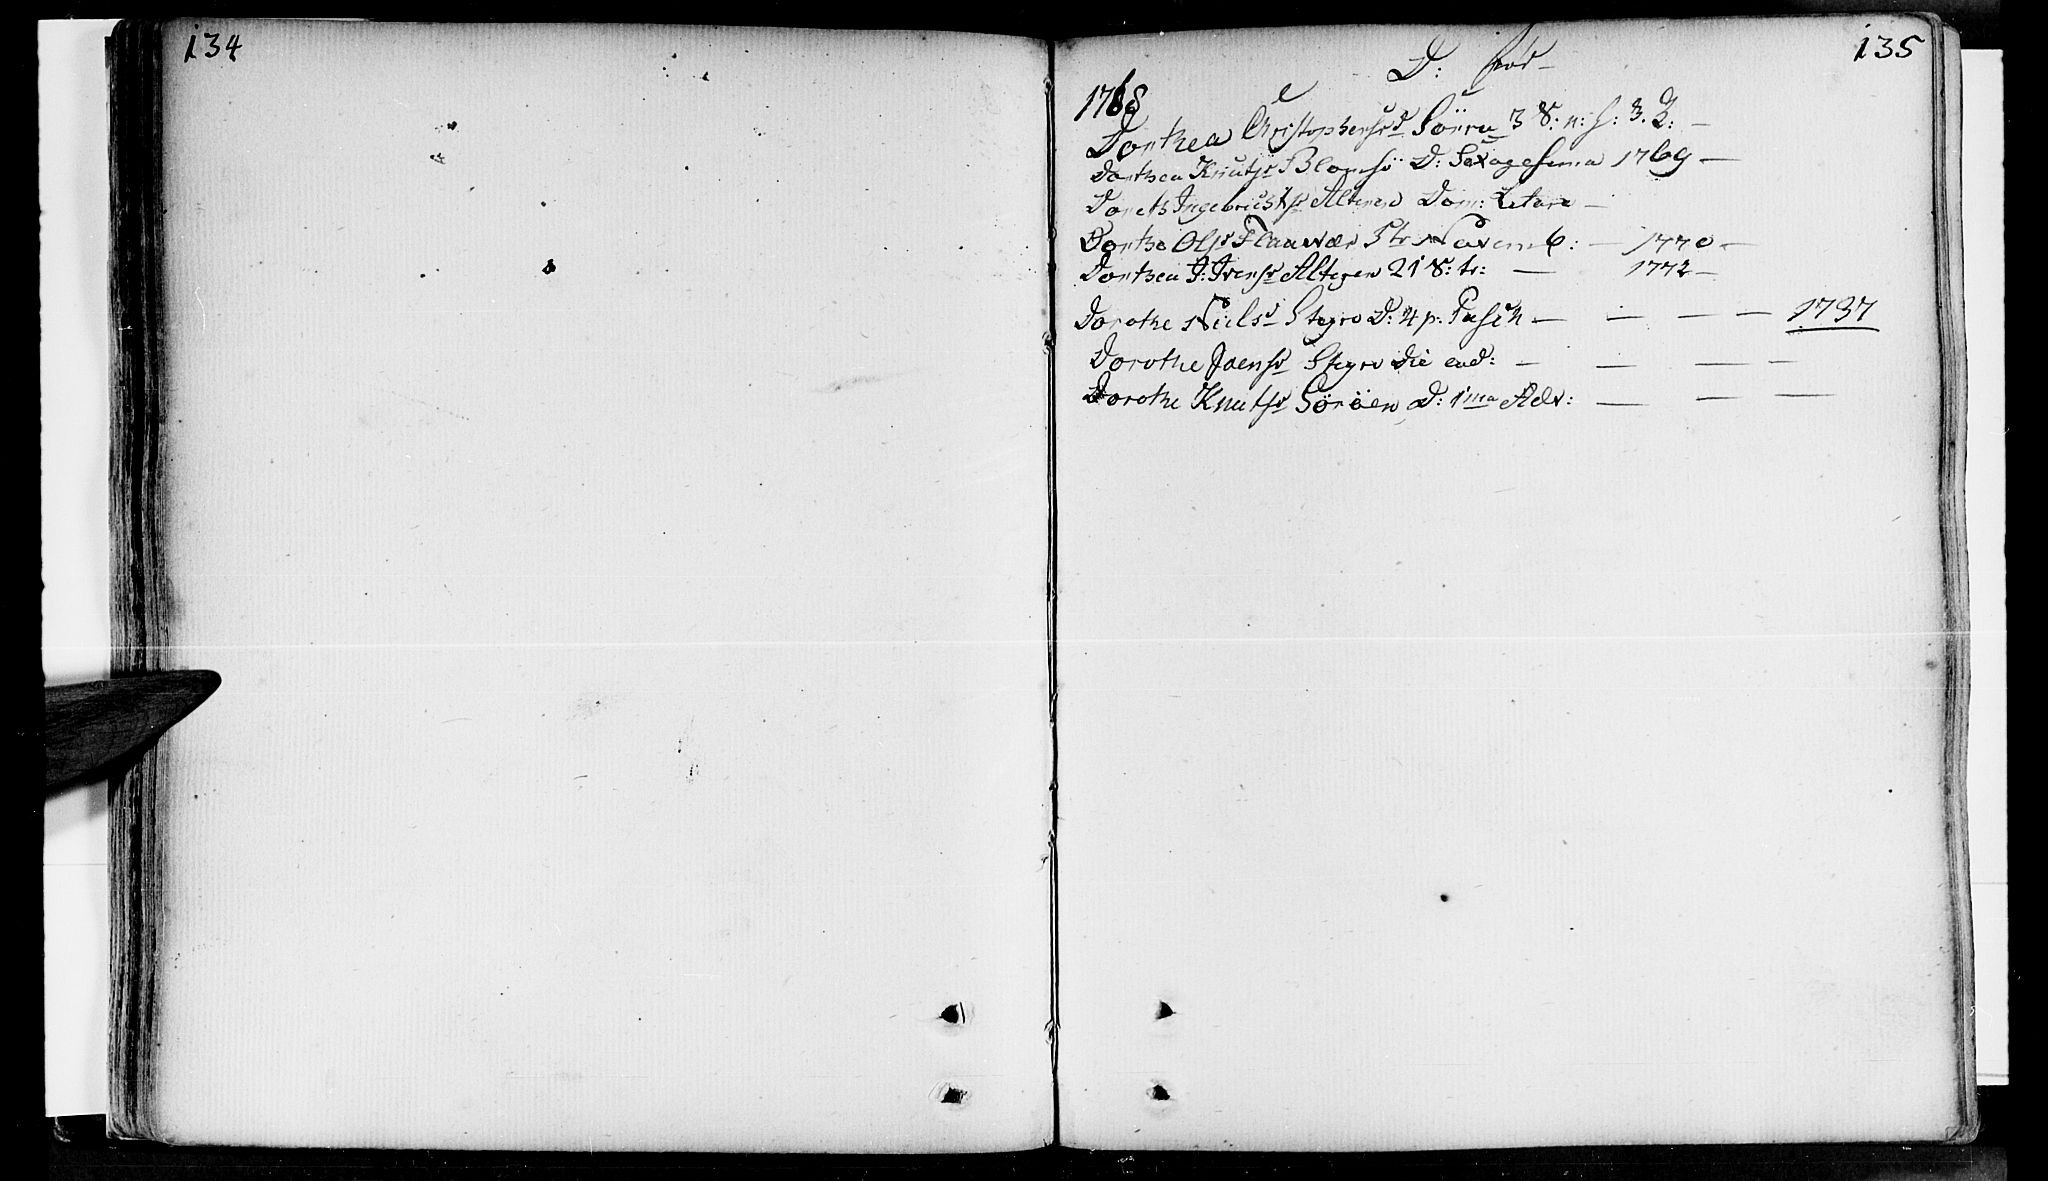 134
135
D: fød
1768
Dorthea Christophersd Sörra 3 S: n: h: 3. K:
Dorthea Knutsd Blomsö D: Sexagesima 1769
Doreth Ingebrictsd Alteren Dom: Letare
Dorthe Olsd Flaavær Novemb: 1770
Dorthea J: Ivensd Alteren 21 S: tr: 1772
Dorothe Nielsd Stegro D: 4 p: Pasch 1797
Dorothe Joensd Stegro Die ead:
Dorothe Knutsd Söröen D: 1ma Adv: